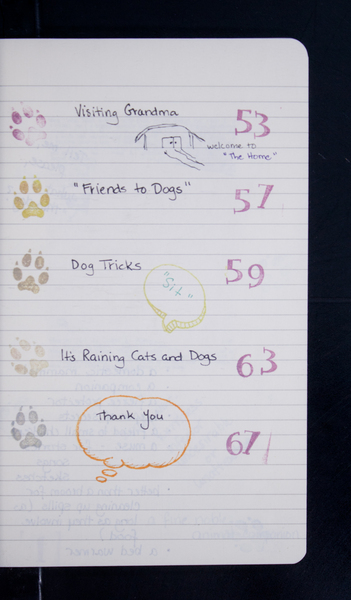 Visiting Grandma 53
welcome to
"The Home"
"Friends to Dogs" 57
Dog Tricks 59
"Sit"
It's Raining Cats and Dogs 63
Thank You 67